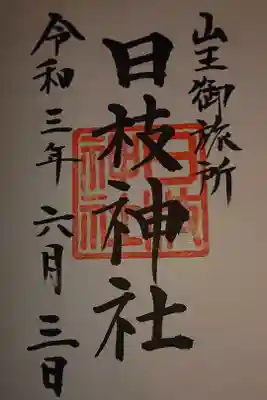 山王御旅所
日枝神社
令和三年六月三日